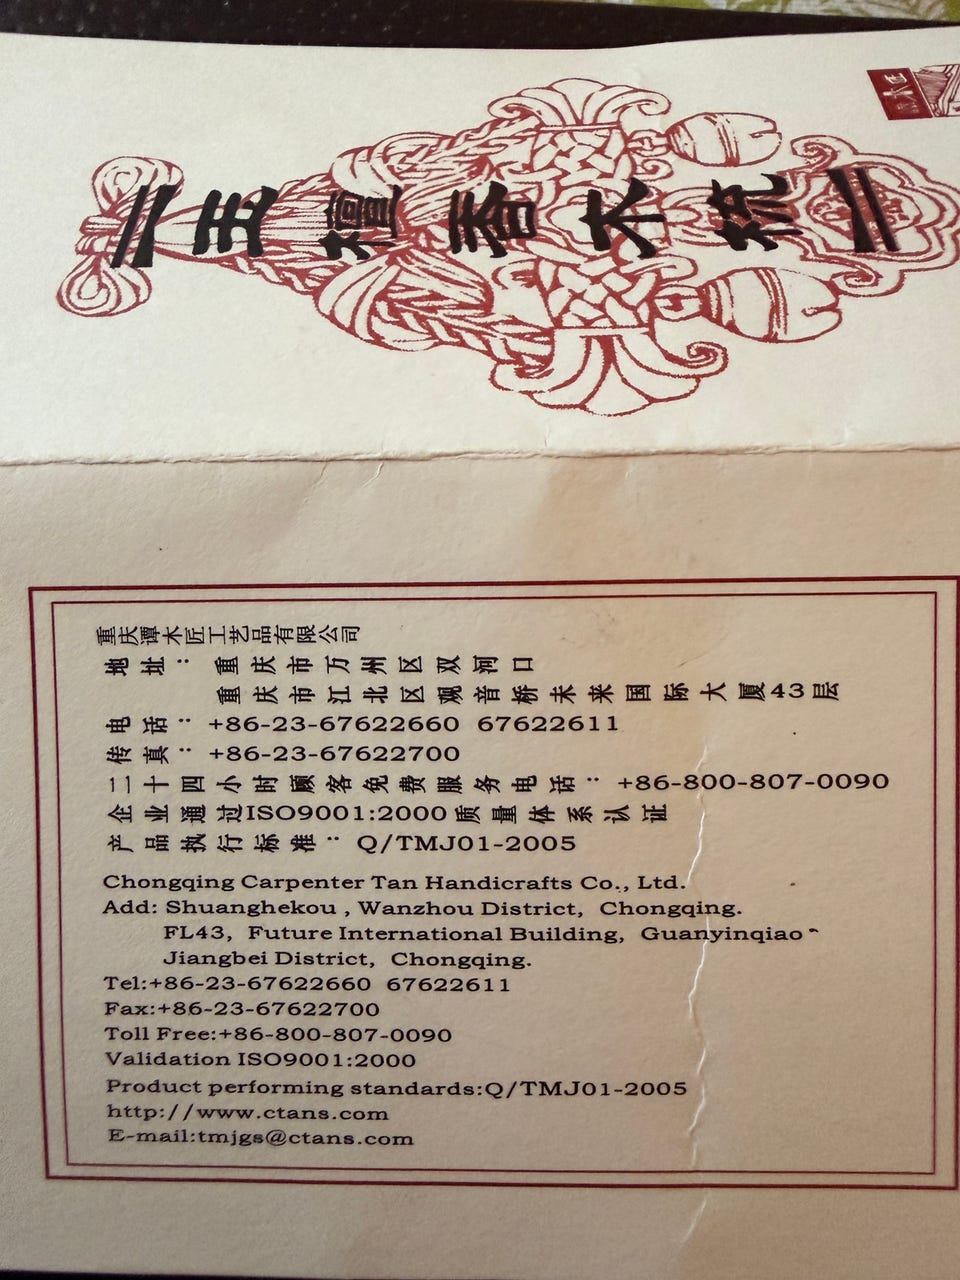 玉檀香木梳
重庆谭木匠工艺品有限公司
地址：重庆市万州区双河口
重庆市江北区观音桥未来国际大厦43层
电话：+86-23-67622660 67622611
传真：+86-23-67622700
二十四小时顾客免费服务电话：+86-800-807-0090
企业通过ISO9001:2000质量体系认证
产品执行标准：Q/TMJ01-2005
Chongqing Carpenter Tan Handicrafts Co., Ltd.
Add: Shuanghekou , Wanzhou District, Chongqing.
FL43, Future International Building, Guanyinqiao、
Jiangbei District, Chongqing.
Tel:+86-23-67622660 67622611
Fax:+86-23-67622700
Toll Free:+86-800-807-0090
Validation ISO9001:2000
Product performing standards:Q/TMJ01-2005
http://www.ctans.com
E-mail:tmjgs@ctans.com